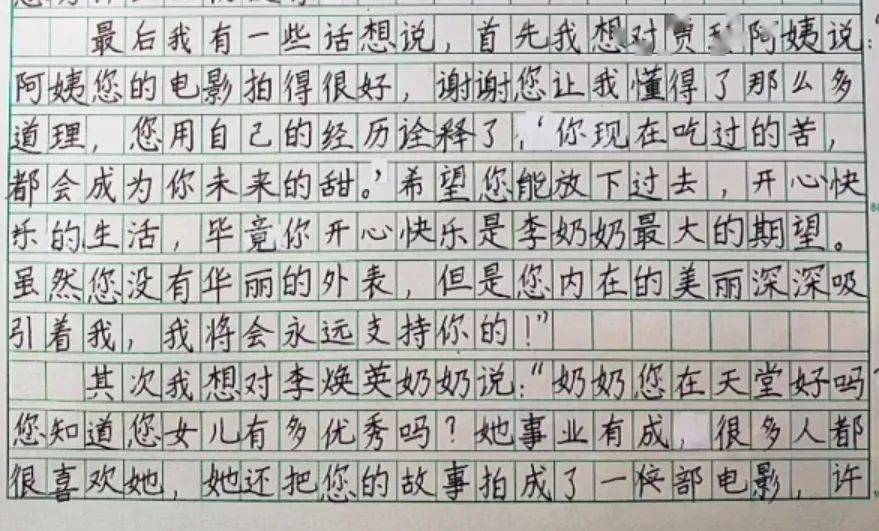 最后我有一些话想说，首先我想对贾玲阿姨说：“
阿姨您的电影拍得很好，谢谢您让我懂得了那么多
道理，您用自己的经历诠释了，‘你现在吃过的苦，
都会成为你未来的甜。’希望您能放下过去，开心快
乐的生活，毕竟你开心快乐是李奶奶最大的期望。
虽然您没有华丽的外表，但是您内在的美丽深深吸
引着我，我将会永远支持你的！”
其次我想对李焕英奶奶说：“奶奶您在天堂好吗
您知道您女儿有多优秀吗？她事业有成，很多人都
很喜欢她，她还把您的故事拍成了一部电影，许